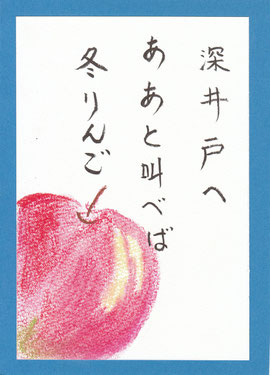 深井戸へ
ああと叫べば
冬りんご